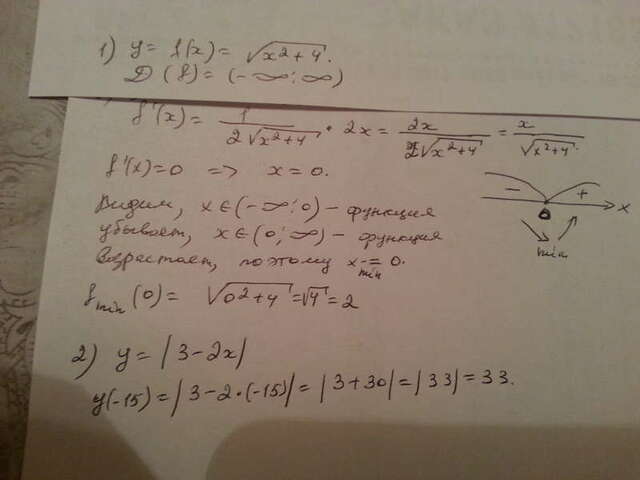 1) y = f(x) = √(x²+4).
D(f) = (-∞; ∞)
f'(x) = 1/(2√(x²+4)) · 2x = 2x/(2√(x²+4)) = x/√(x²+4).
f'(x)=0 => x=0.
− + x
0
min
Видим, x∈(-∞;0) – функция
убывает, x∈(0;∞) – функция
возрастает, поэтому x min = 0.
f min (0) = √(0²+4) = √4 = 2
2) y = |3-2x|
y(-15) = |3-2·(-15)| = |3+30| = |33| = 33.